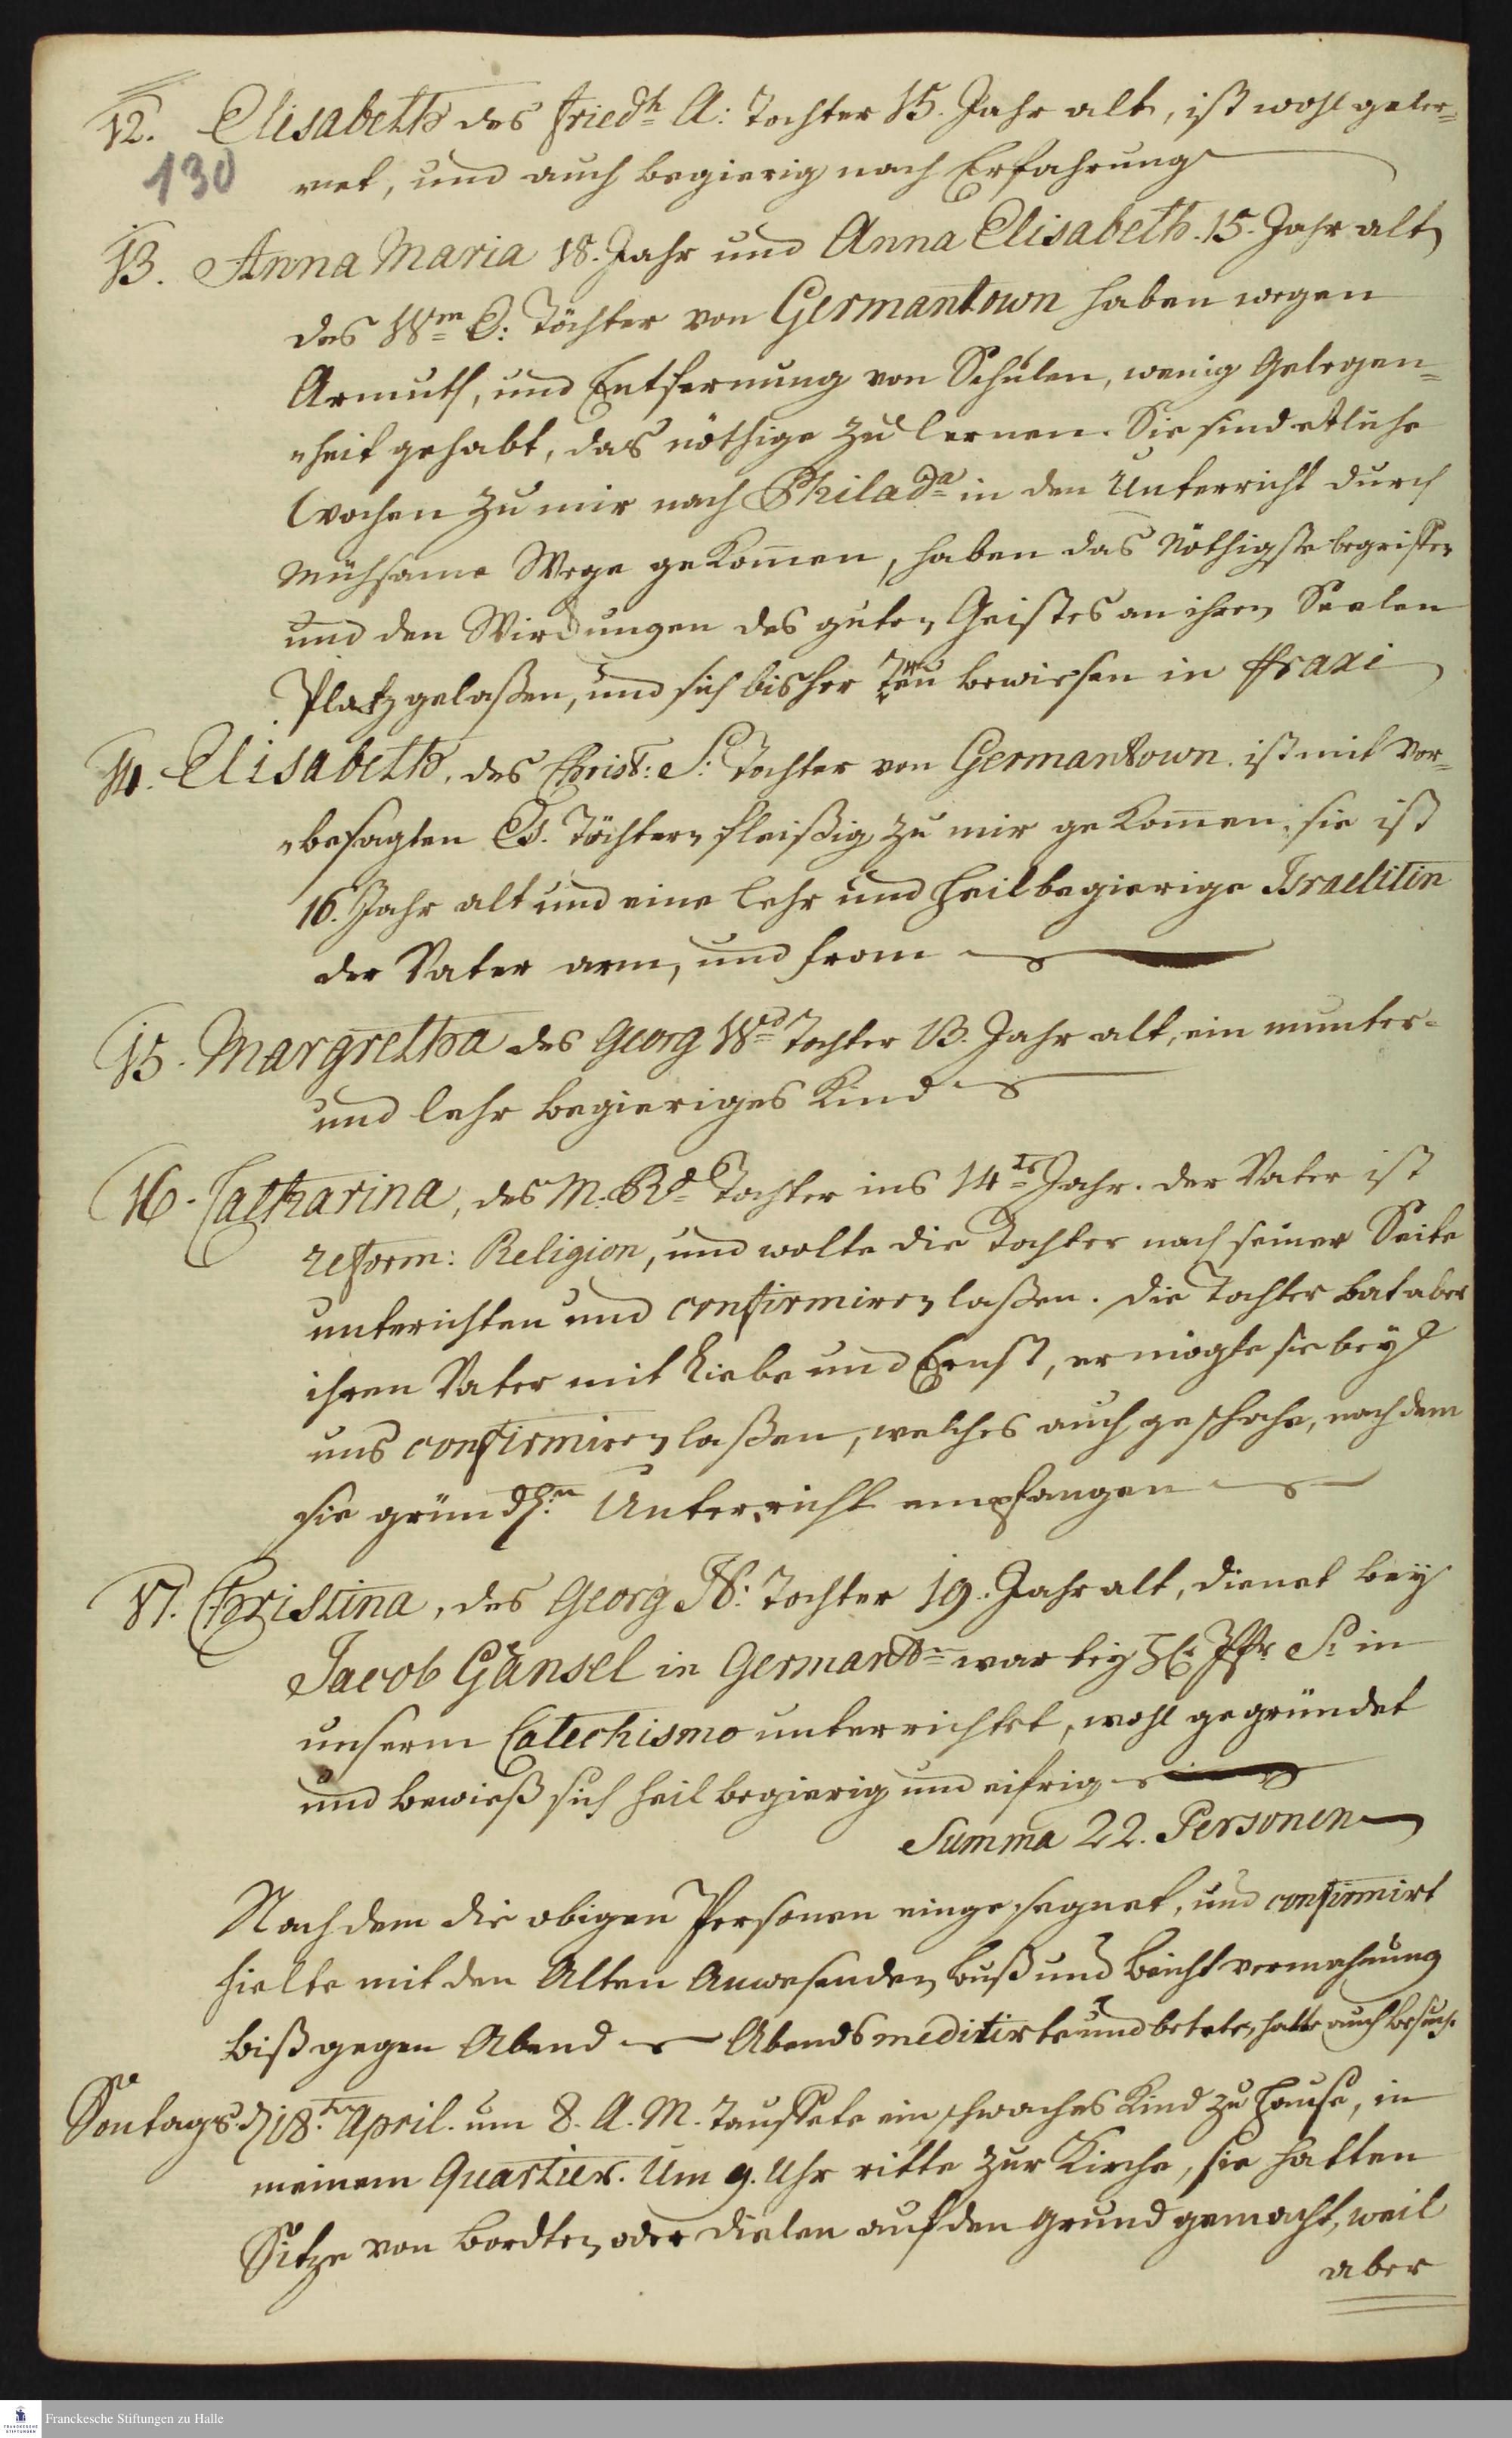 12. Elisabeth des Fried:h A: Tochter 15. Jahr alt, ist wohl geler=
130
net, und auch begierig nach Erfahrung
13. Anna Maria 18. Jahr und Anna Elisabeth. 15. Jahr alt,
des Wm. E: Töchter von Germantown haben wegen
Armuth, und Entfernung von Schulen, wenig Gelegen=
=heit gehabt, das nöthige zu lernen. Sie sind etliche
Wochen zu mir nach Philada in den Unterricht durch
mühsame Wege gekom̄en, haben das Nöthigste begriffen
und den Wirckungen des guten Geistes an ihren Seelen
Platz gelaßen, und sich bisher treu bewiesen in praxi
14. Elisabeth, des Christ: S: Tochter von Germantown. ist mit vor=
=besagten Es. Töchtern fleißig zu mir gekom̄en, sie ist
16. Jahr alt und eine lehr und heilbegierige Israelitin
der Vater arm, und from
15. Margretha des Georg Wd Tochter 13. Jahr alt, ein munter=
und lehr begieriges Kind
16. Catharina, des M. Rd Tochter ins 14te Jahr. der Vater ist
reform: Religion, und wolte die Tochter nach seiner Seite
unterichten und confirmiren laßen. die Tochter bat aber
ihren Vater mit Liebe und Ernst, er mögte sie bey
uns confirmiren laßen, welches auch geschehe, nachdem
sie gründl:n Unterricht empfangen
17. Christina, des Georg H: Tochter 19. Jahr alt, dienet bey
Jacob Gänsel in Germantn war bey S: in
unserm Catechismo unterrichtet, wohl gegründet
und bewieß sich heil begierig und eifrig
Summa 22. Personen
Nachdem die obigen Personen eingesegnet, und confirmirt
hielte mit den Alten Anwesenden buß und beicht vermahnung
biß gegen Abend Abends meditirte und betete, hatte auch besuch.
Sontags d 18:ten April. um 8. A. M. tauffete ein schwaches Kind zu Hause, in
meinem Quartier. Um 9. Uhr ritte zur Kirche, sie hatten
Sitze von Bordten oder Dielen auf den Grund gemacht, weil
aber
Franckesche Stiftungen zu Halle